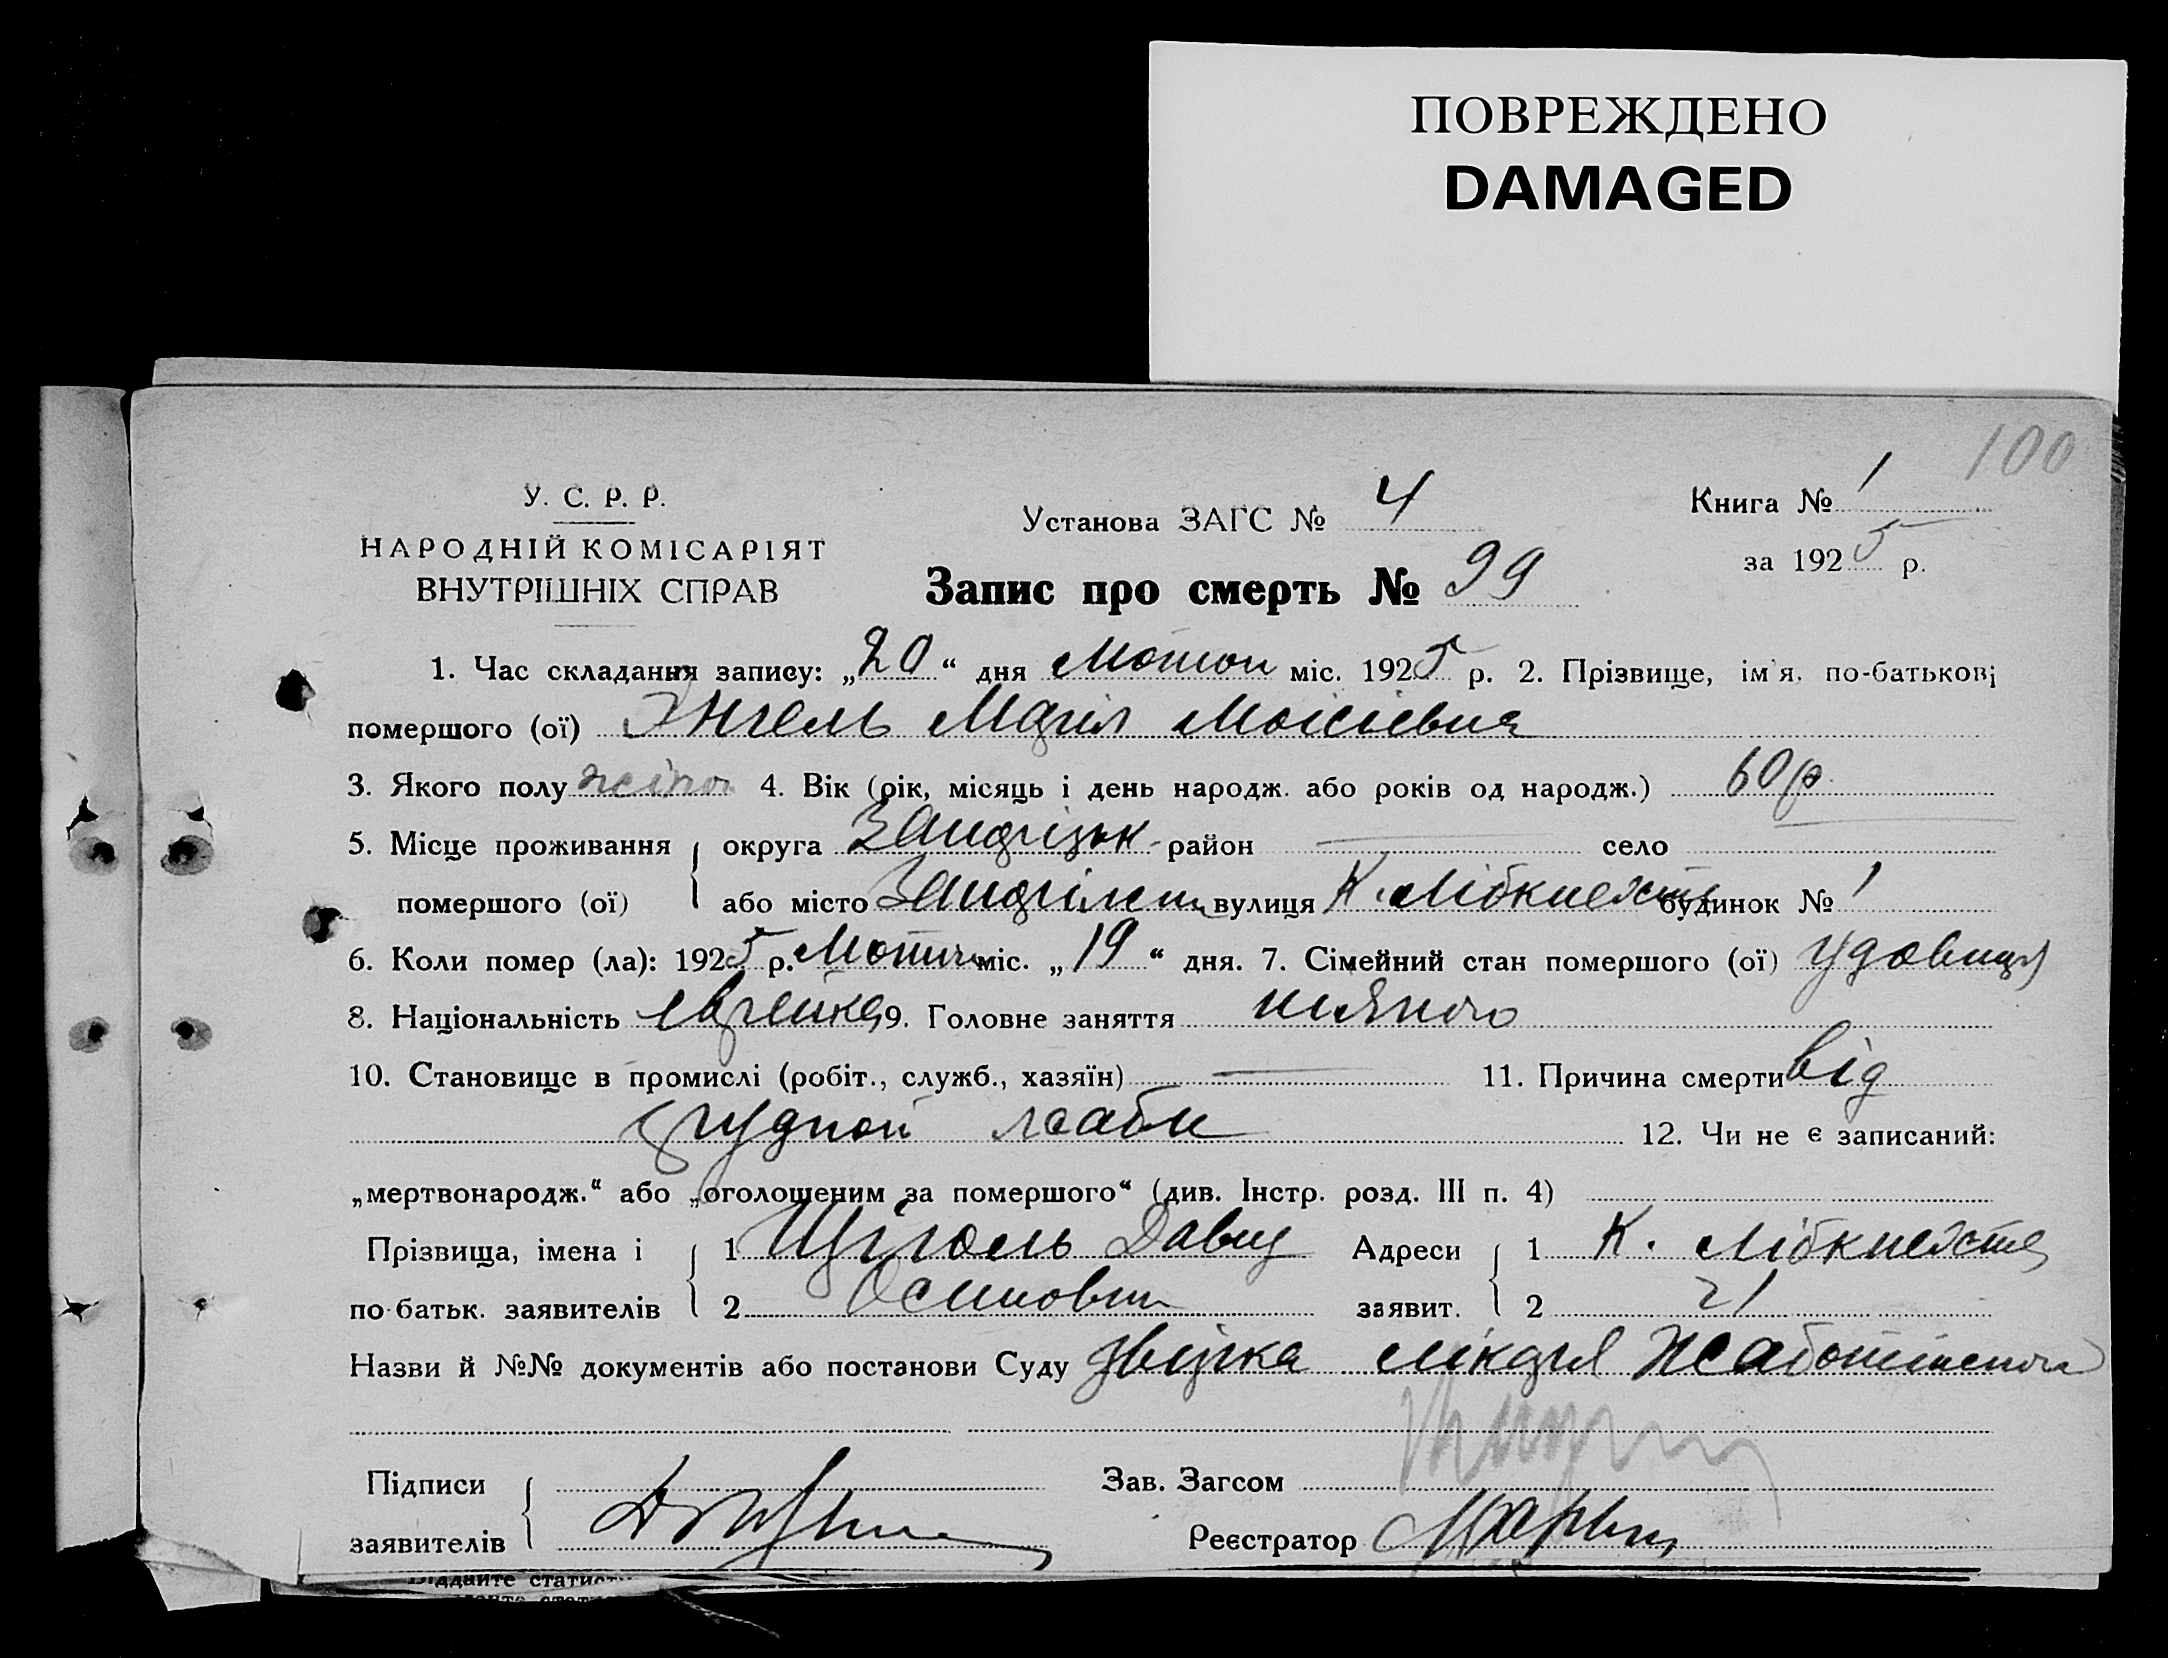 ПОВРЕЖДЕНО
DAMAGED
100
У. С. Р. Р.
НАРОДНІЙ КОМІСАРІЯТ
ВНУТРІШНІХ СПРАВ
Установа ЗАГС № 4
Книга № 1
за 1925 р.
Запис про смерть № 99
1. Час складання запису: „20“ дня міс. 1925 р. 2. Прізвище, ім'я, по-батькові
помершого (ої) Энгель Марія Моісієвна
3. Якого полу жіно 4. Вік (рік, місяць і день народж. або років од народж.) 60 р.
5. Місце проживання округа район — село
помершого (ої) або місто вулиця К. Лібкнехста будинок № 1
6. Коли помер (ла): 1925 р. міс. „19“ дня. 7. Сімейний стан помершого (ої) удовиця
8. Національність єврейка 9. Головне заняття
10. Становище в промислі (робіт., служб., хазяїн) — 11. Причина смерти від
грудной жаби 12. Чи не є записаний:
„мертвонародж.“ або „оголошеним за помершого“ (див. Інстр. розд. III п. 4)
Прізвища, імена і 1 Давид Адреси 1 К. Лібкнехста
по-батьк. заявителів 2 Осипович заявит. 2 21
Назви й №№ документів або постанови Суду довідка лікаря
Підписи Зав. Загсом
заявителів Реєстратор